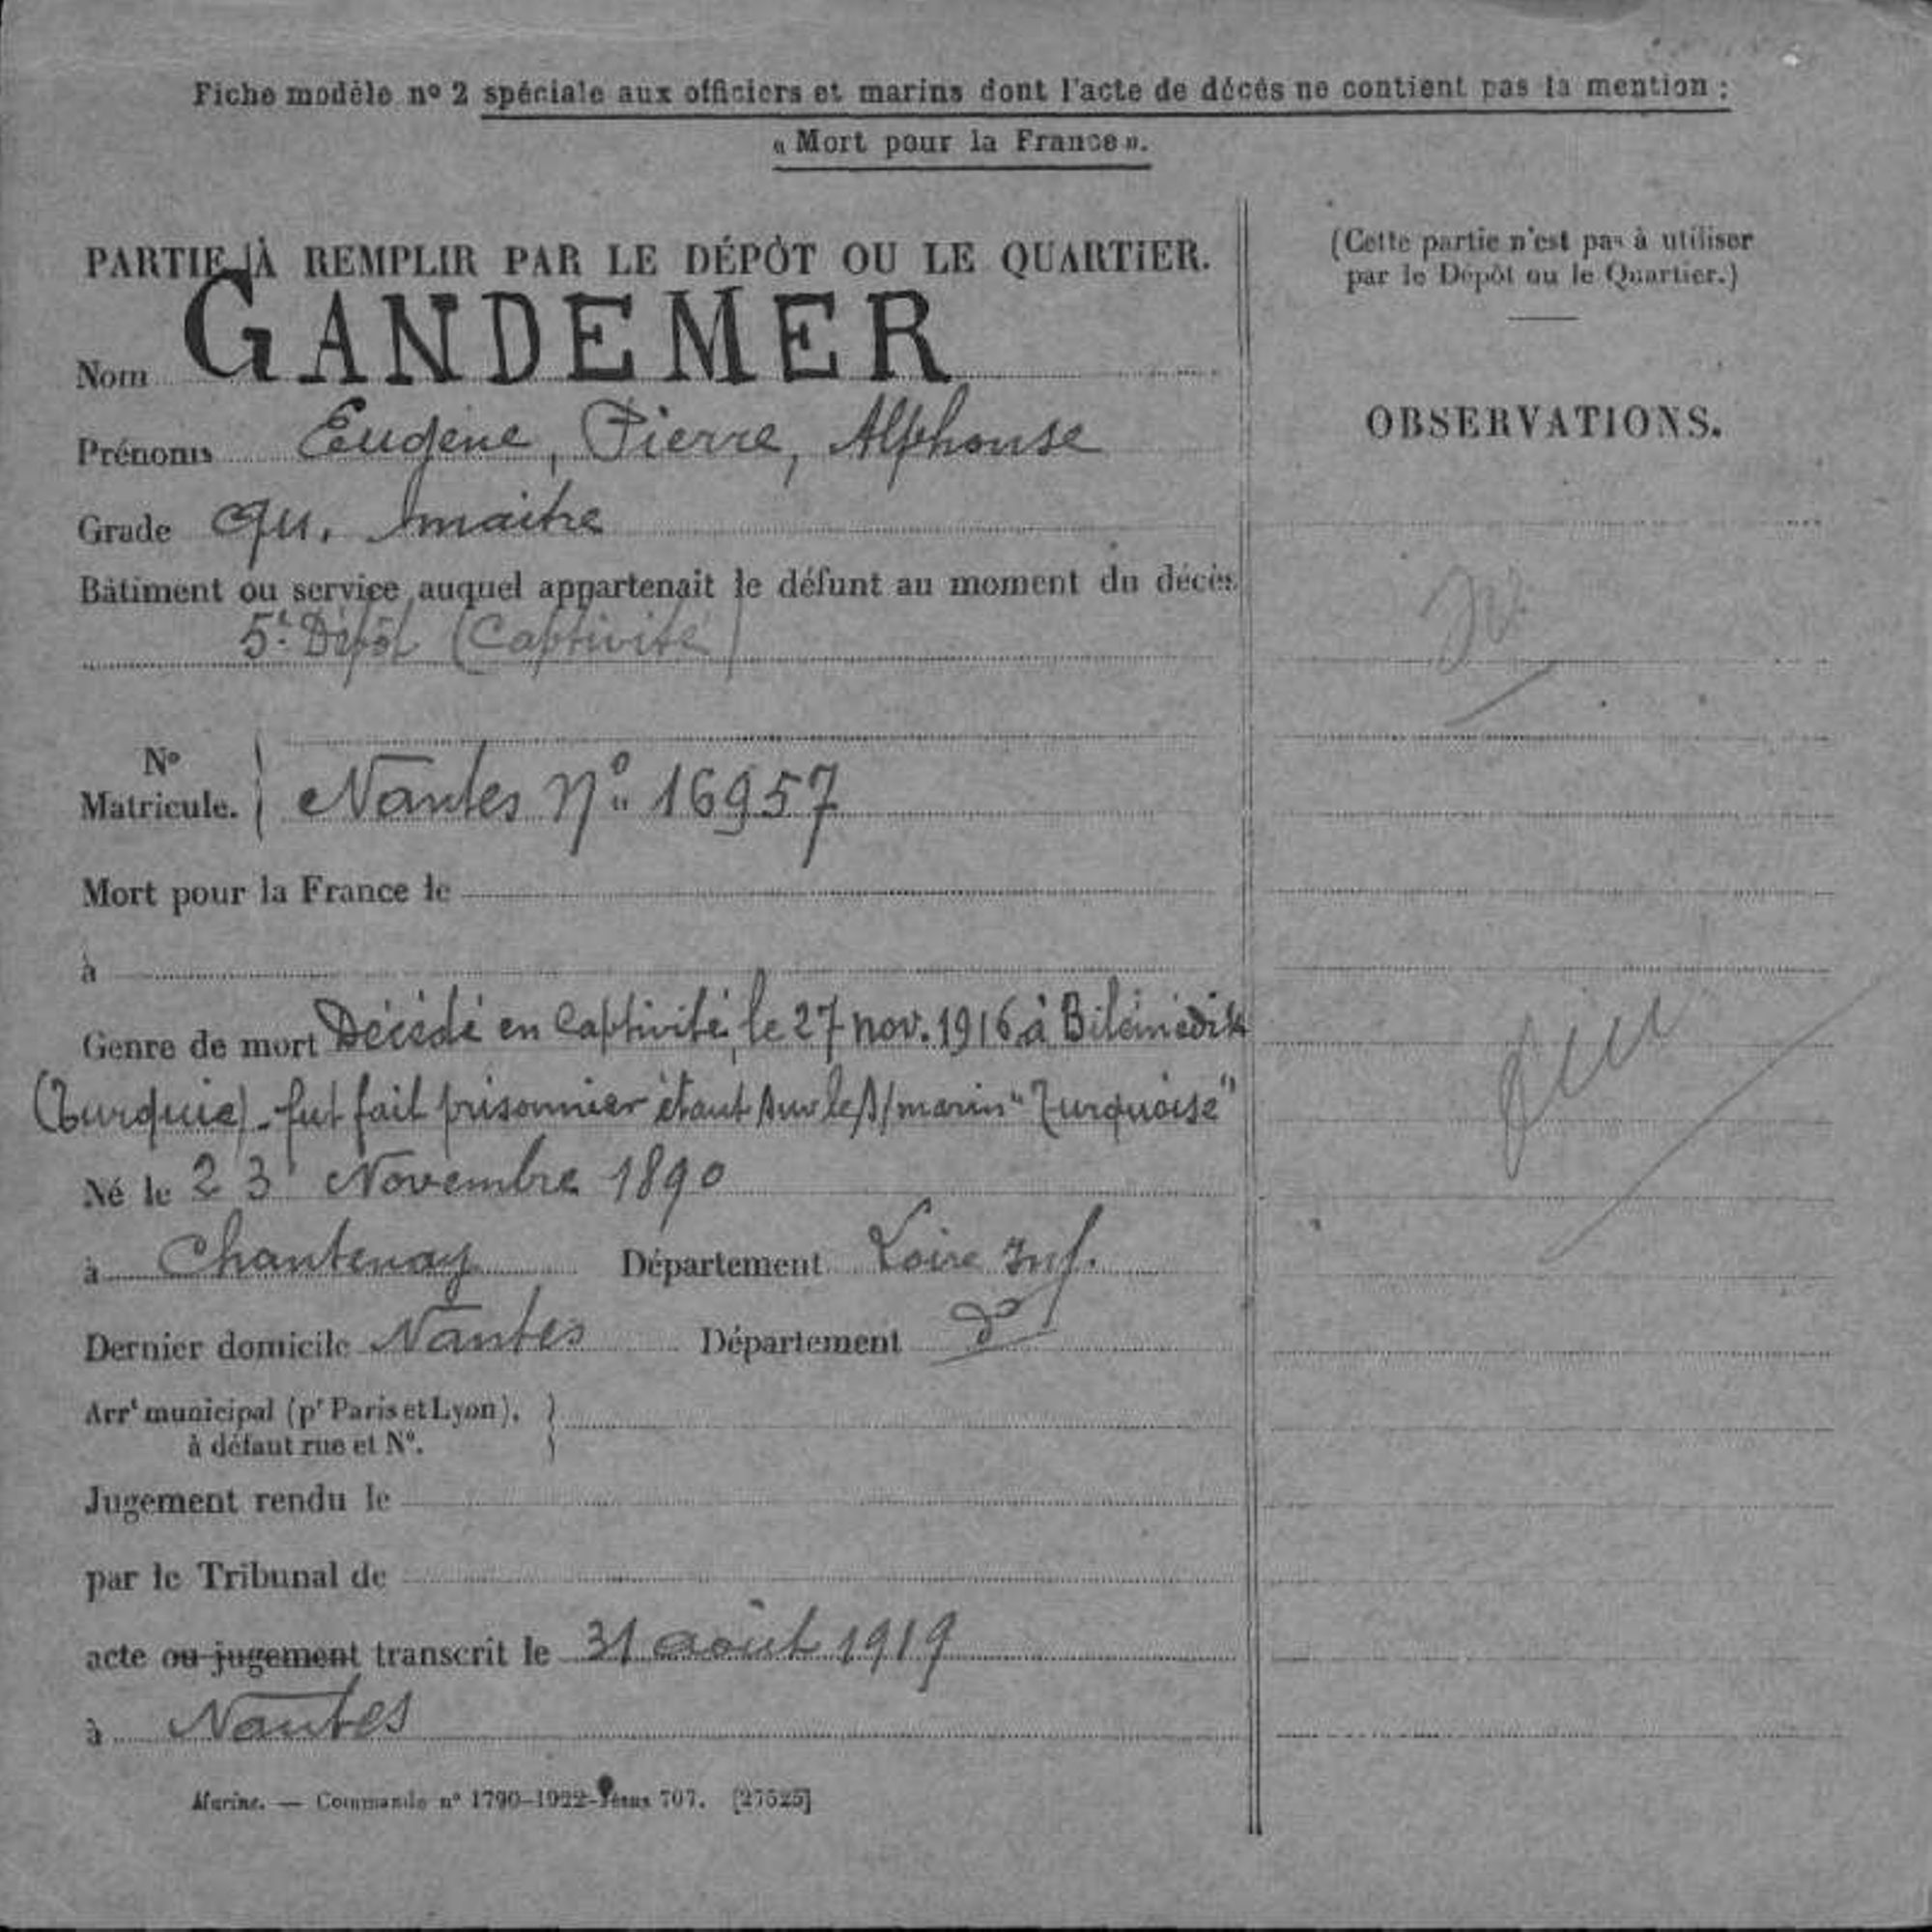 Fiche modèle nº 2 spéciale aux officiers et marins dont l'acte de décés ne contient pas la mention :
« Mort pour la France ».
PARTIE À REMPLIR PAR LE DÉPÔT OU LE QUARTIER.
Nom GANDEMER
Prénoms Eugène, Pierre, Alphonse
Grade qu. maitre
Bâtiment ou service auquel appartenait le défunt au moment du décès
5e Dépôt (Captivité)
Nº
Matricule. Nantes Nº 16957
Mort pour la France le
à
Genre de mort Décédé en Captivité, le 27 nov. 1916 à Bilémédik
(Turquie). fut fait prisonnier étant sur le s/marin "Turquoise"
Né le 23 Novembre 1890
à Chantenay Département Loire Inf.
Dernier domicile Nantes Département do
Arrt municipal (pr Paris et Lyon),
à défaut rue et Nº.
Jugement rendu le
par le Tribunal de
acte ou jugement transcrit le 31 août 1919
à Nantes
Marine. — Commande nº 1790-1922-Jésus 707. [27525]
(Cette partie n'est pas à utiliser
par le Dépôt ou le Quartier.)
OBSERVATIONS.